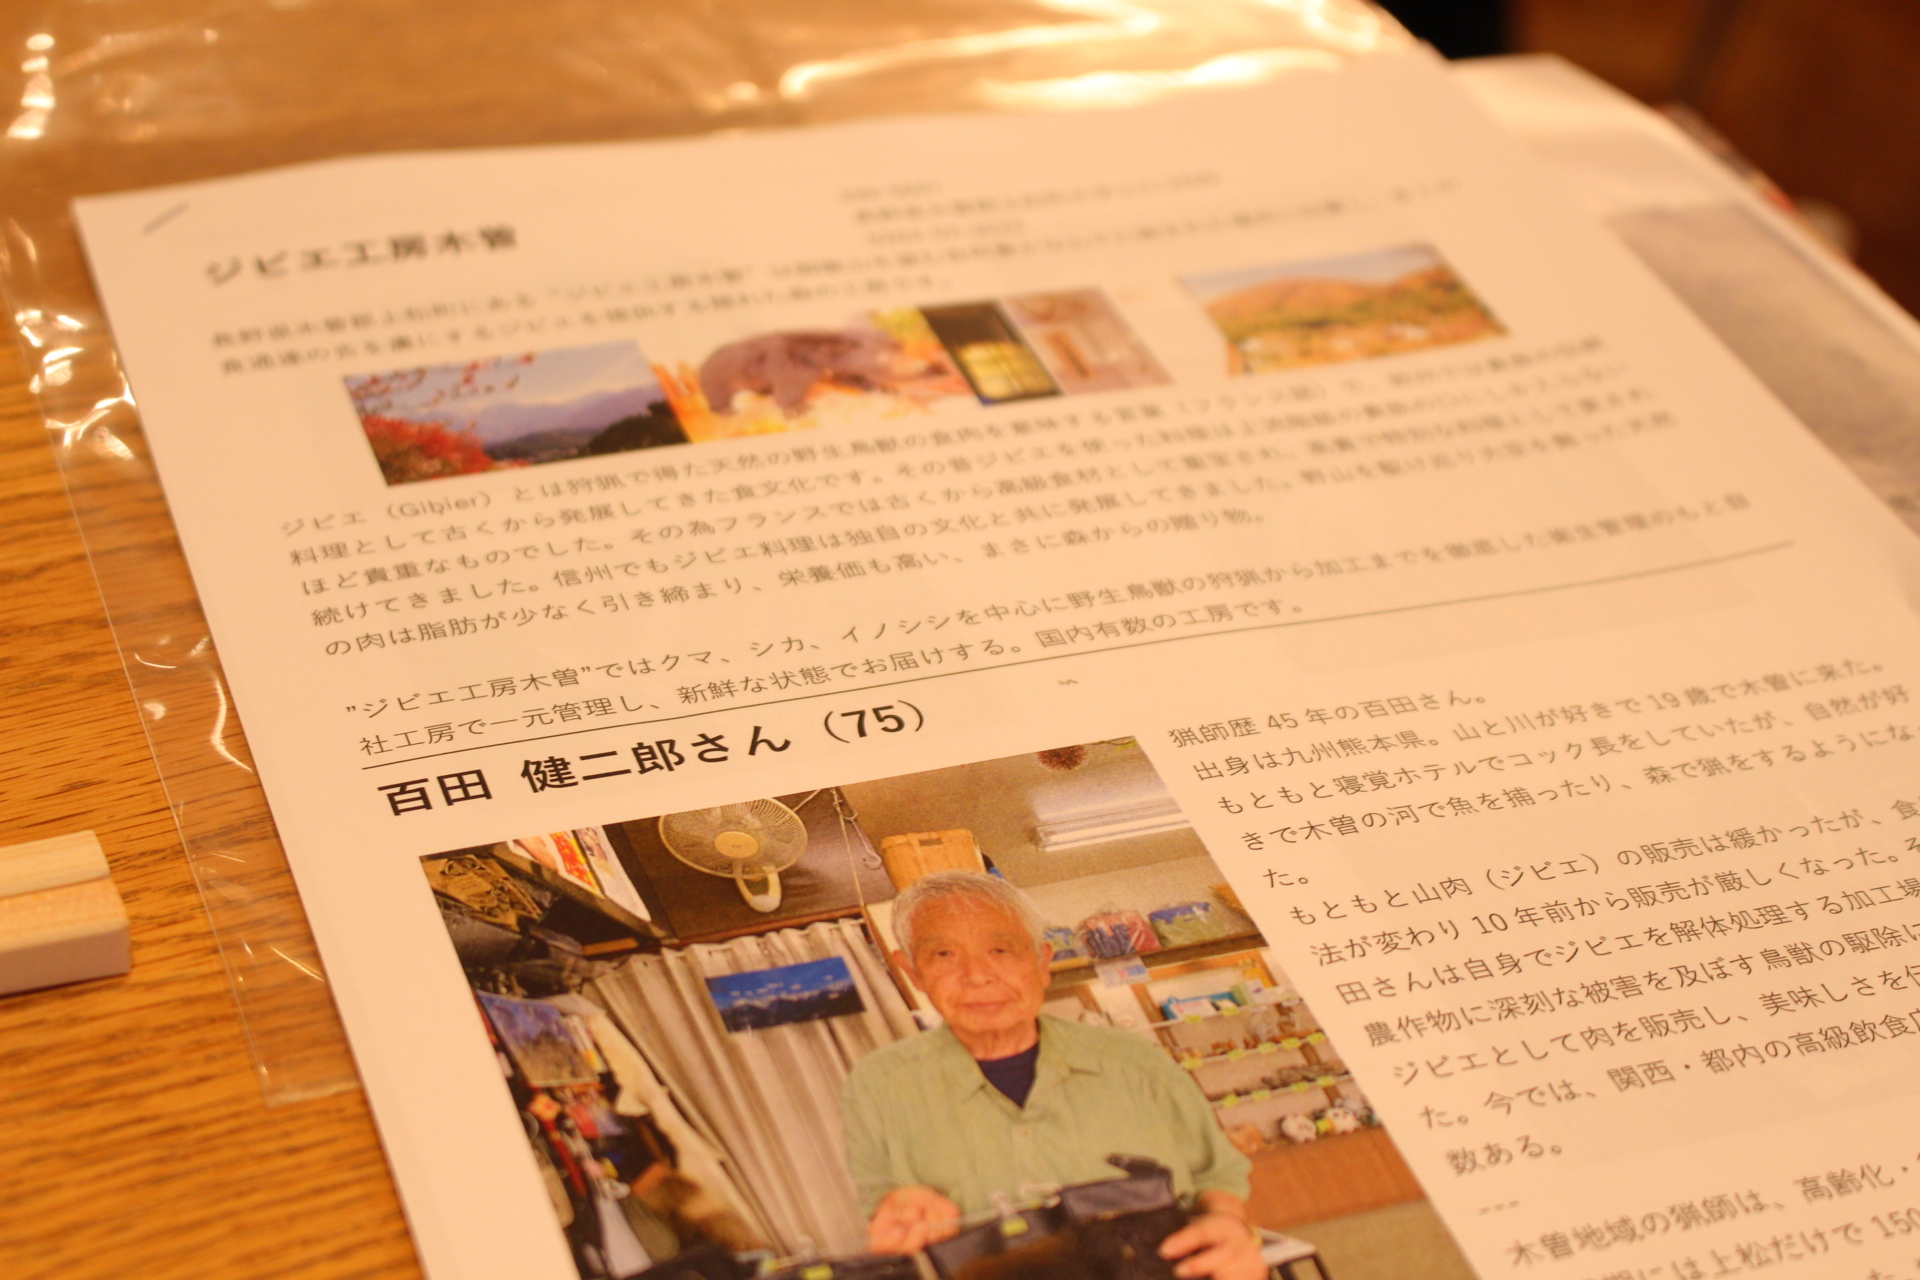 ジビエ工房木曽
長野県木曽郡上松町にある"ジビエ工房木曽"は
食通達の舌を虜にするジビエを提供する隠れた森の工房です。
ジビエ（Gibier）とは狩猟で得た天然の野生鳥獣の食肉を意味する言葉（フランス語）で、欧州では貴族の伝統
料理として古くから発展してきた食文化です。その昔ジビエを使った料理は上流階級の貴族の口にしか入らない
ほど貴重なものでした。その為フランスでは古くから高級食材として重宝され、高貴で特別な料理として愛され
続けてきました。信州でもジビエ料理は独自の文化と共に発展してきました。野山を駆け巡り大空を舞った天然
の肉は脂肪が少なく引き締まり、栄養価も高い、まさに森からの贈り物。
”ジビエ工房木曽”ではクマ、シカ、イノシシを中心に野生鳥獣の狩猟から加工までを徹底した衛生管理のもと自
社工房で一元管理し、新鮮な状態でお届けする。国内有数の工房です。
百田 健二郎さん（75）
猟師歴 45 年の百田さん。
出身は九州熊本県。山と川が好きで 19 歳で木曽に来た。
もともと寝覚ホテルでコック長をしていたが、自然が好
きで木曽の河で魚を捕ったり、森で猟をするようになっ
た。
もともと山肉（ジビエ）の販売は緩かったが、食
法が変わり 10 年前から販売が厳しくなった。そ
田さんは自身でジビエを解体処理する加工場
農作物に深刻な被害を及ぼす鳥獣の駆除に
ジビエとして肉を販売し、美味しさを伝
た。今では、関西・都内の高級飲食店
数ある。
---
木曽地域の猟師は、高齢化・
には上松だけで 150